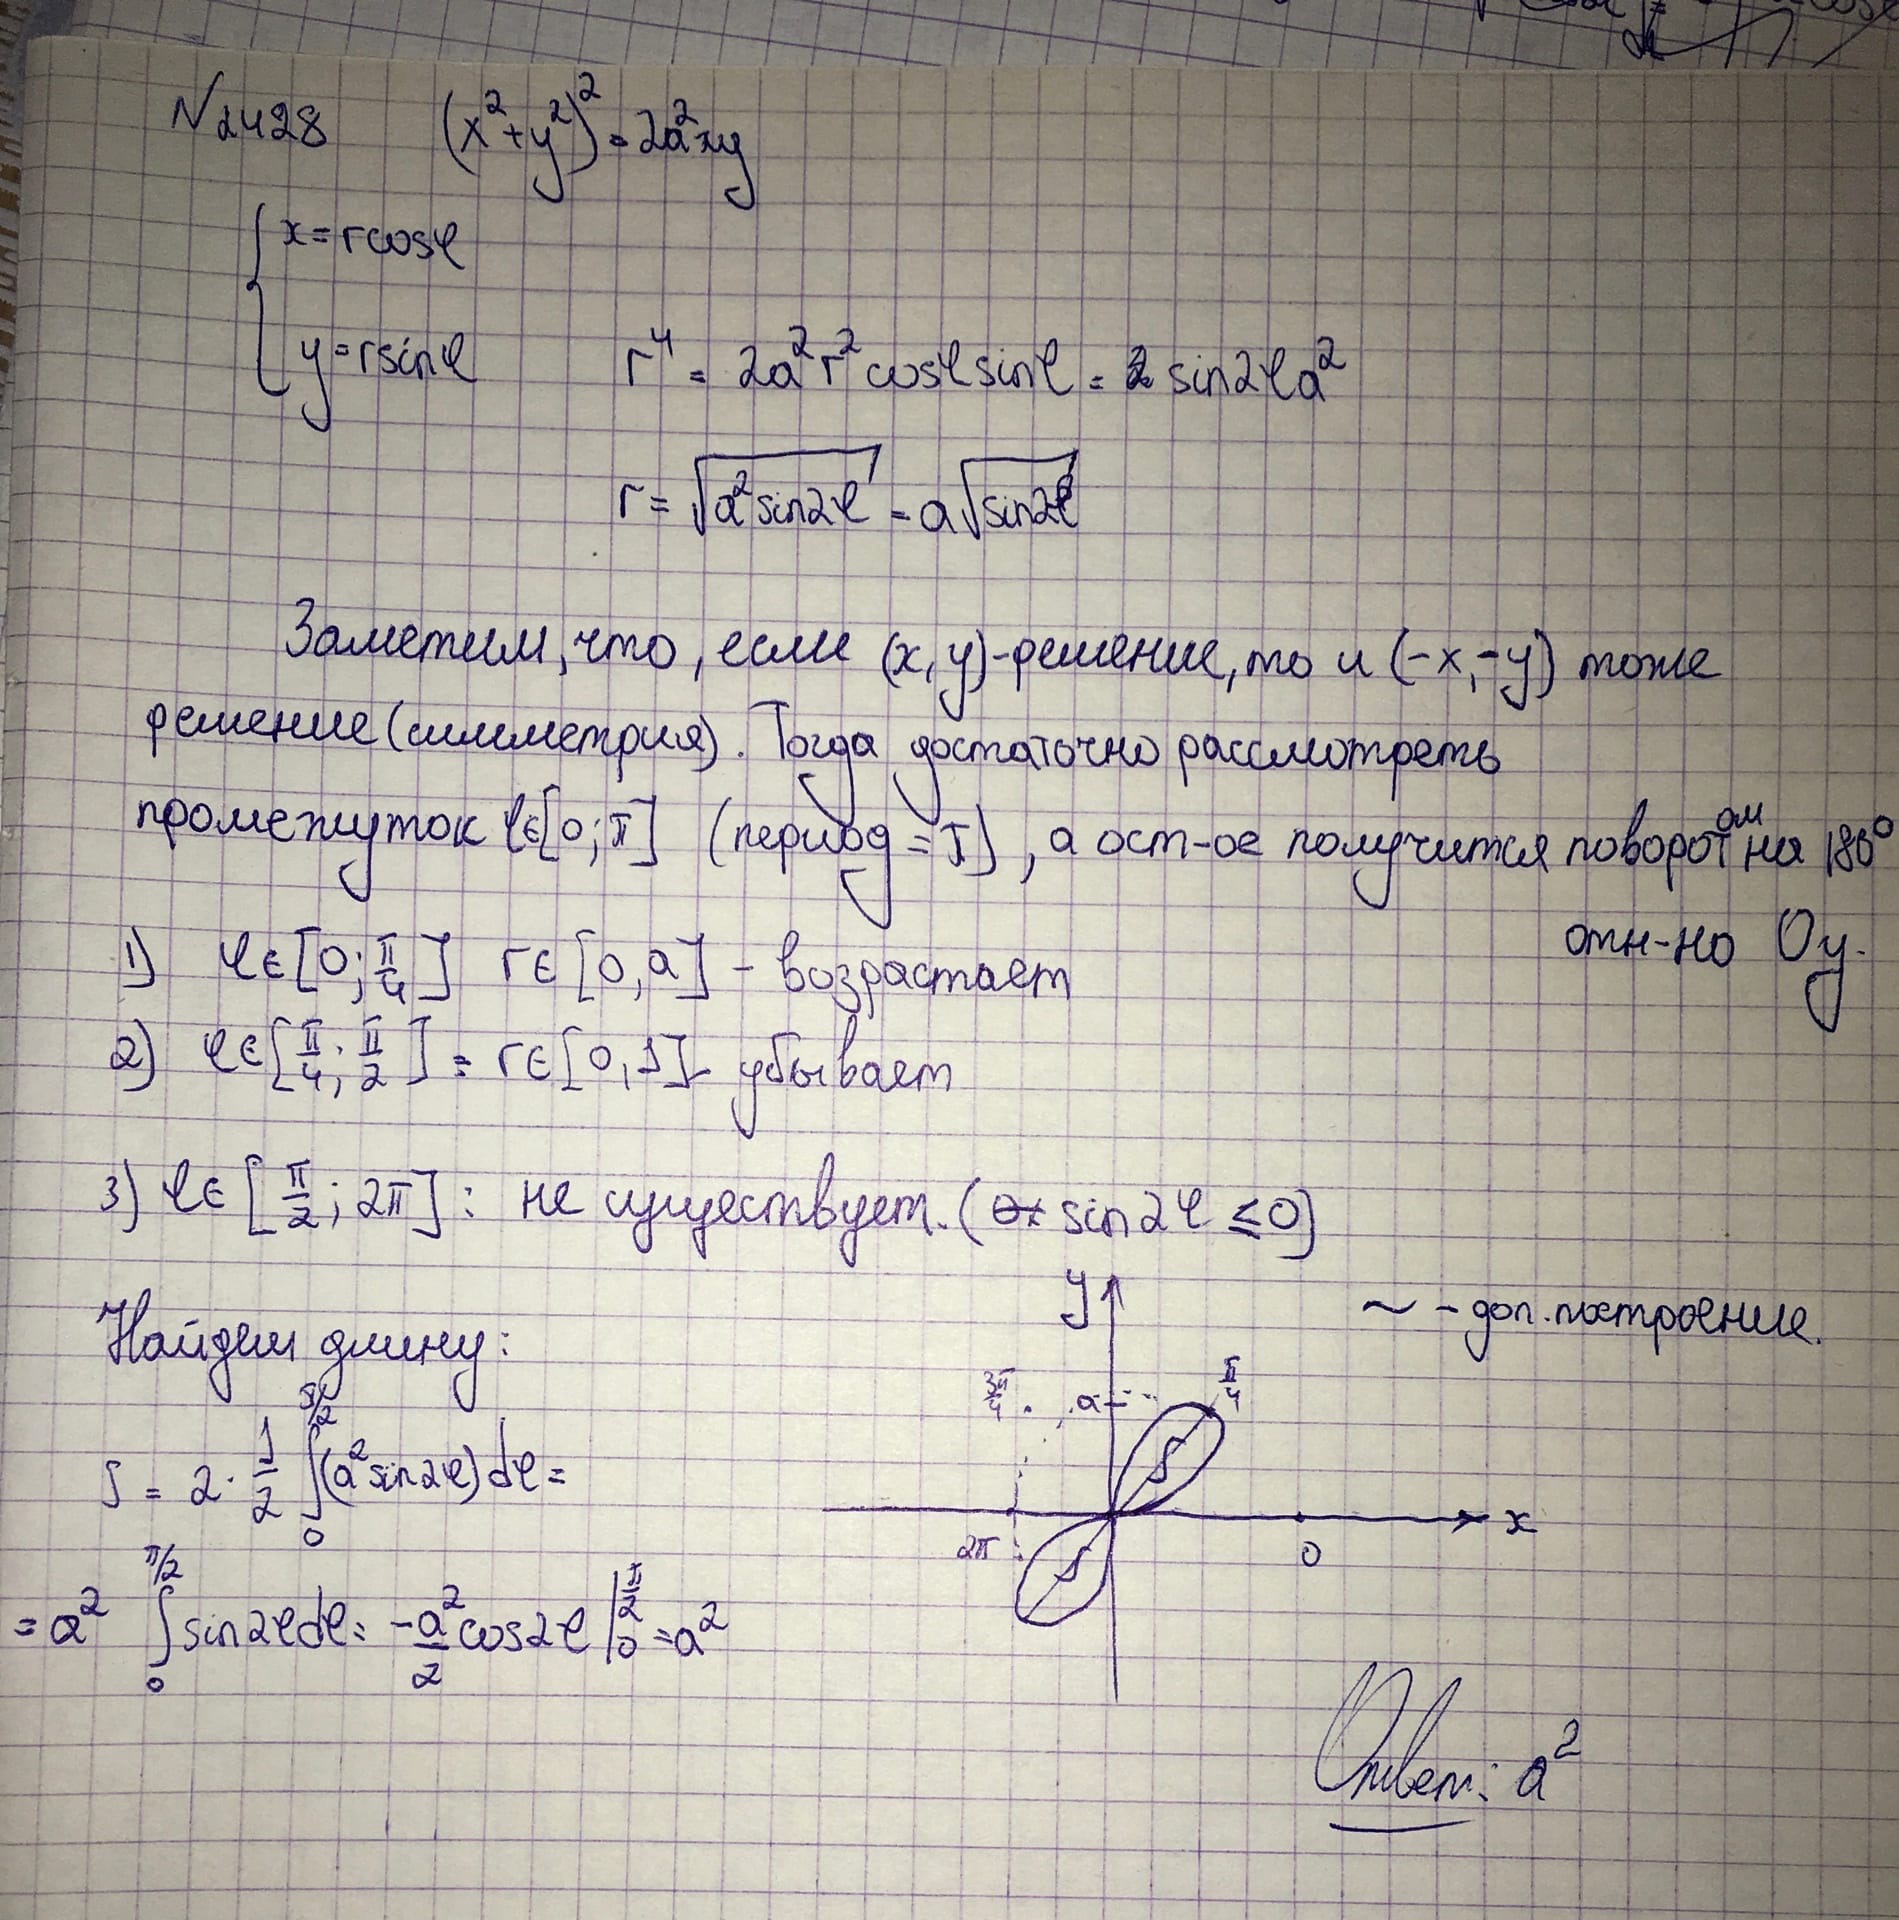 N2428 (x²+y²)²=2a²xy
{ x=rcosφ
y=rsinφ r⁴ = 2a²r²cosφsinφ = 2 sin2φa²
r = √(a²sin2φ) = a√(sin2φ)
Заметим, что, если (x,y)-решение, то и (-x,-y) тоже
решение (симметрия). Тогда достаточно рассмотреть
промежуток φ∈[0;π] (период = π), а ост-ое получится поворотом на 180°
отн-но Oy.
1) φ∈[0;π/4] r∈[0,a] - возрастает
2) φ∈[π/4;π/2] = r∈[0,1]- убывает
3) φ∈[π/2;2π]: не существует. (sin2φ ≤0)
Найдем длину:
~ - доп. построение.
S = 2·1/2 ∫₀^(π/2) (a²sin2φ)dφ=
= a² ∫₀^(π/2) sin2φdφ = -a²/2 cos2φ |₀^(π/2) = a²
y
3π/4
a
π/4
S
x
2π
S
0
Ответ: a²